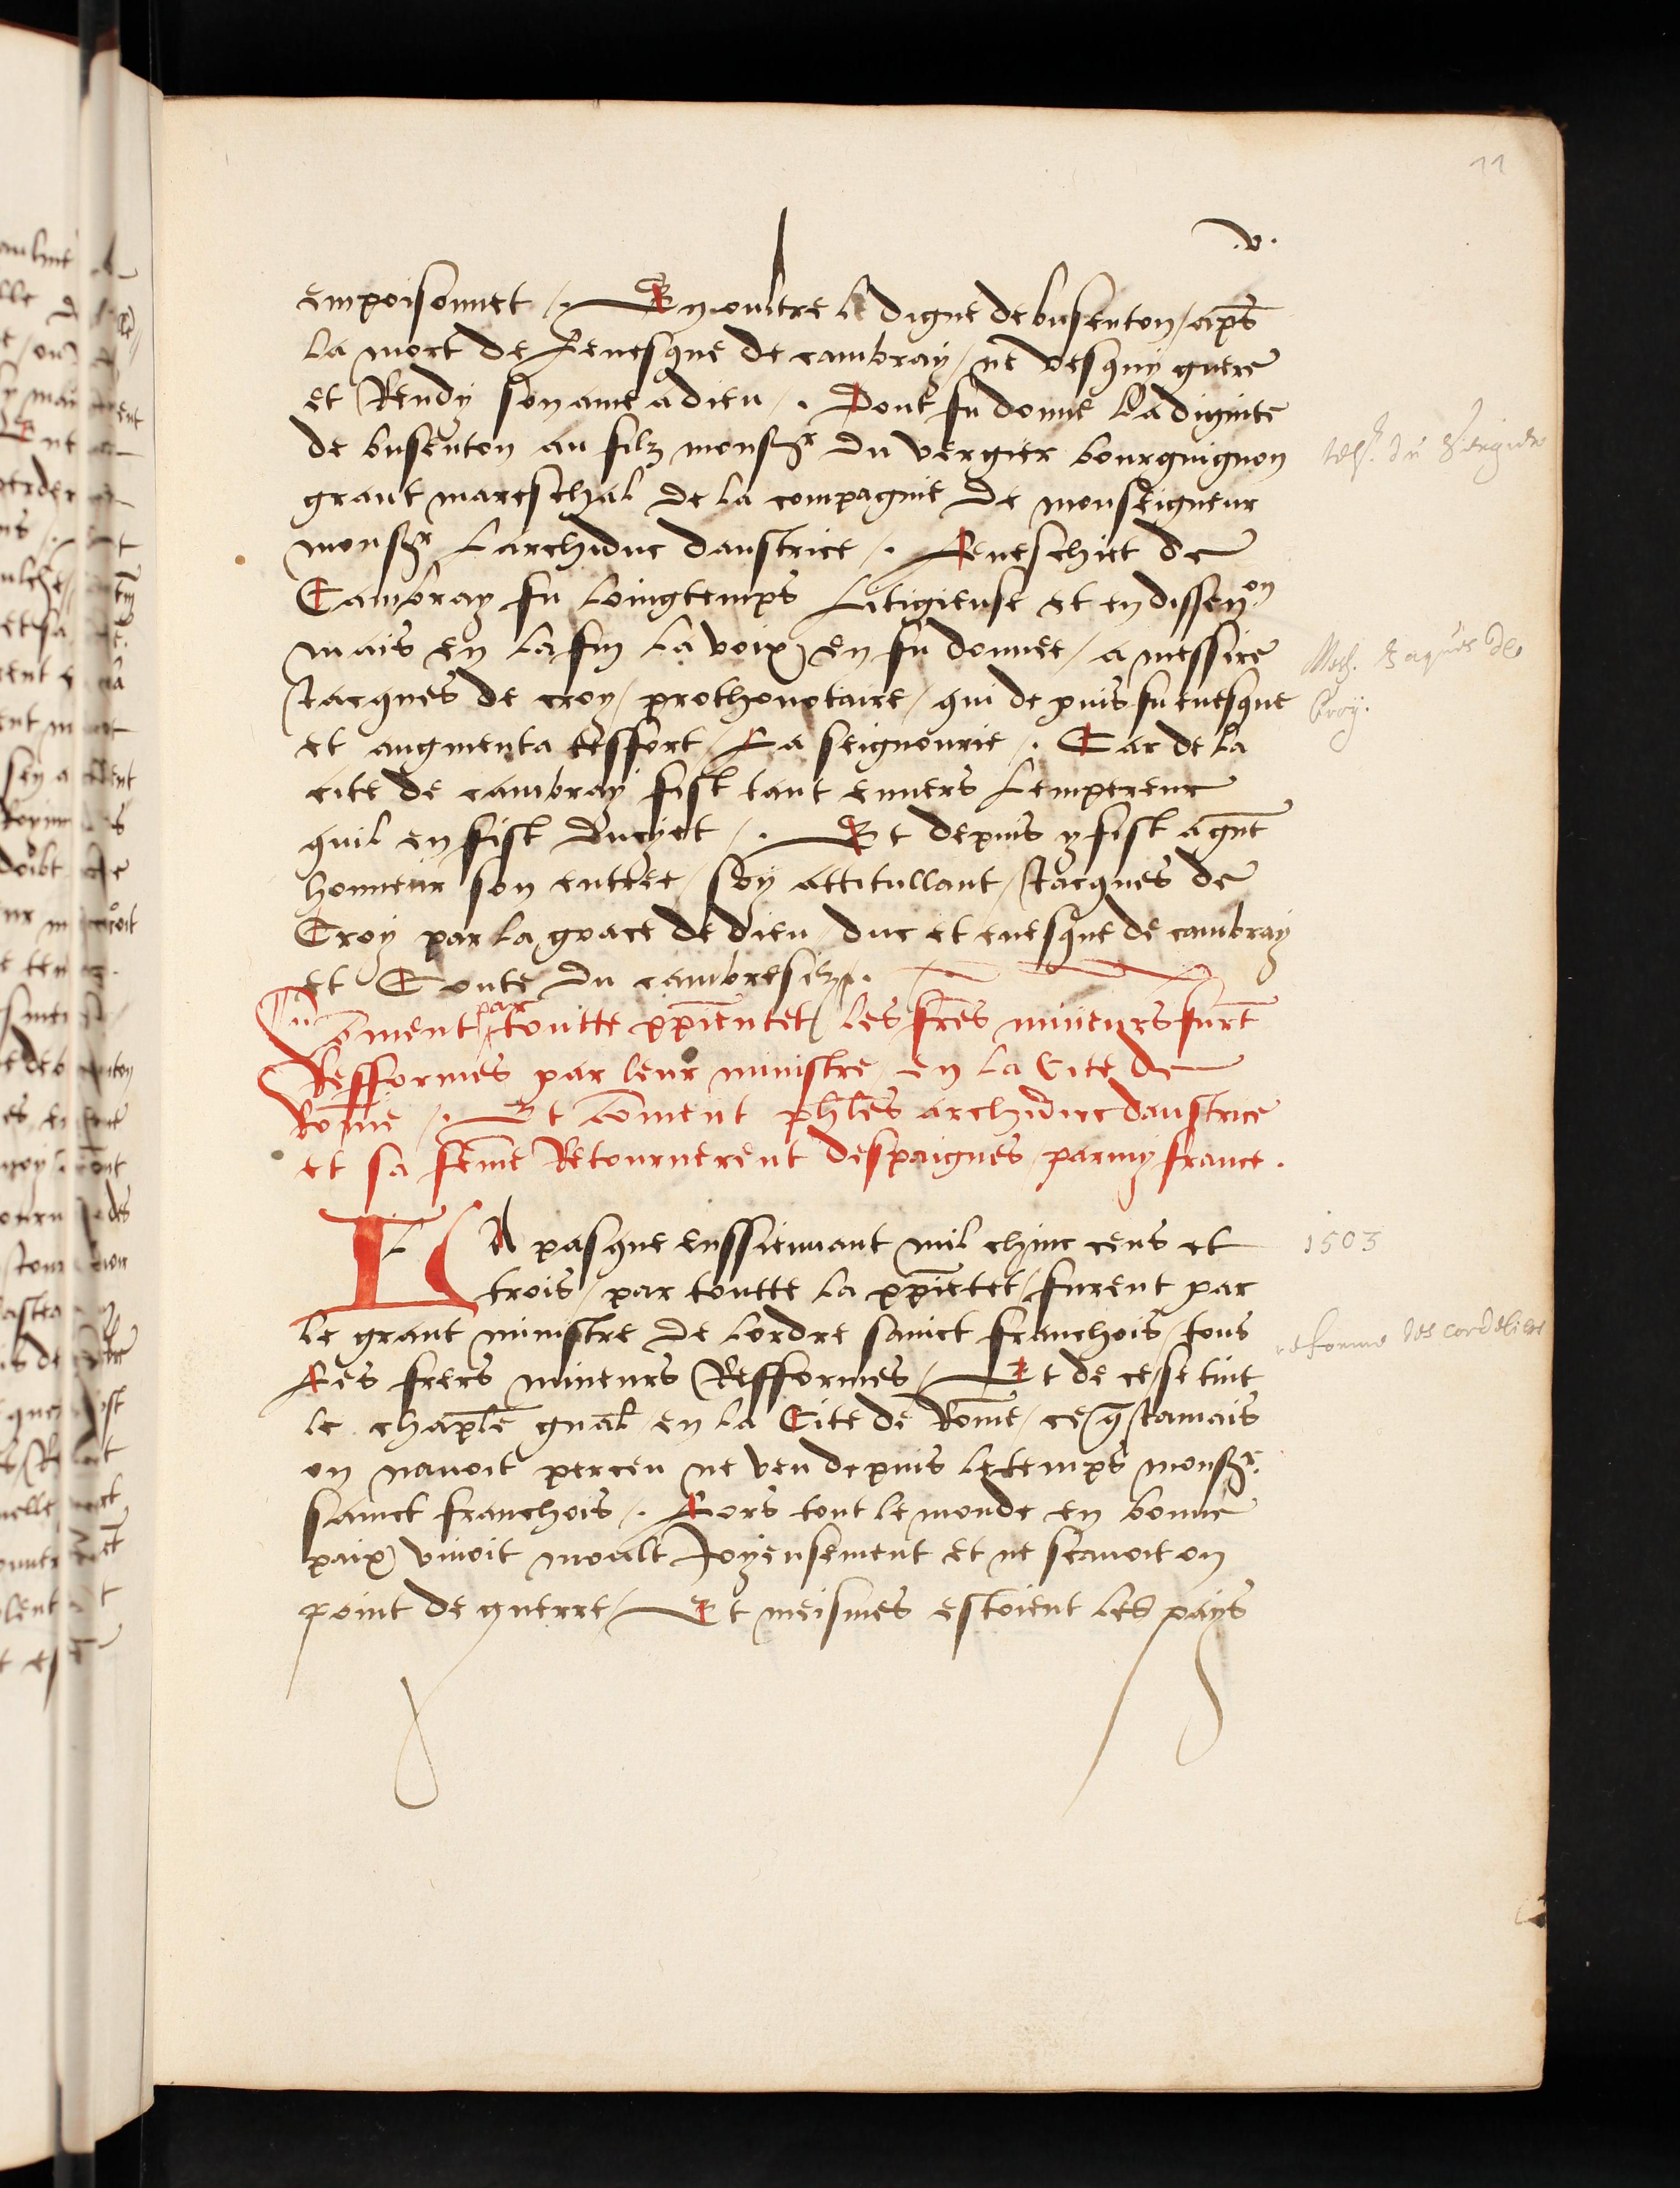 11
.v.
empoisonnet /. En oultre le digne de busenton / aps̄
la mort de leuesque de cambray / ne vesquy guere
et Rendy son ame a dieu /. Dont fu donne la dignite
de busenton au filz monsgr du vergier bourguignon
grant mareschal de la compagnie de monseigneur
monsgr larchiduc daustrice /. Leueschiet de
Cambray fu loingtemps litigieuse et en dissenon
mais en la fin la voix en fu donnee / a messire
Jacques de croy / prothonotaire / qui depuis fu euesque
et augmenta tresfort / La seignourie /. Car de la
cite de cambray fist tant enuers lempereur
quil en fist ducyet /. Et depuis y fist a gnt
honneur son entree / soy attitullant / Jacques de
Croy par la grace de dieu / duc et euesque de cambray
et Conte du cambresiz /.
Com̄ent par toutte xp̄ientet / les frēs mineurs furt̄
Refformes par leur ministre / en la Cite de
Rom̄e /. Et com̄ent phl̄es archiduc daustrice
et sa fem̄e Retournerent despaignes / parmy france .
LA pasque enssieuuant mil chinc cens et
trois / par toutte la xp̄ietet / furent par
le grant ministre de lordre sainct franchois / tous
Les frers mineurs Refformes / Et de ce se tint
le chap̄le gnāl / en la Cite de Rom̄e / ce q̄ Jamais
on nauoit perceu ne veu depuis le temps monsgr.
sainct franchois /. Lors tout le monde en bonne
paix viuoit moult Joyeusement et ne scauoit on
point de guerre / Et meismes estoient les pays
du Vergier
Mess. Jaques de
Croy.
1503
reforme des cordeliers